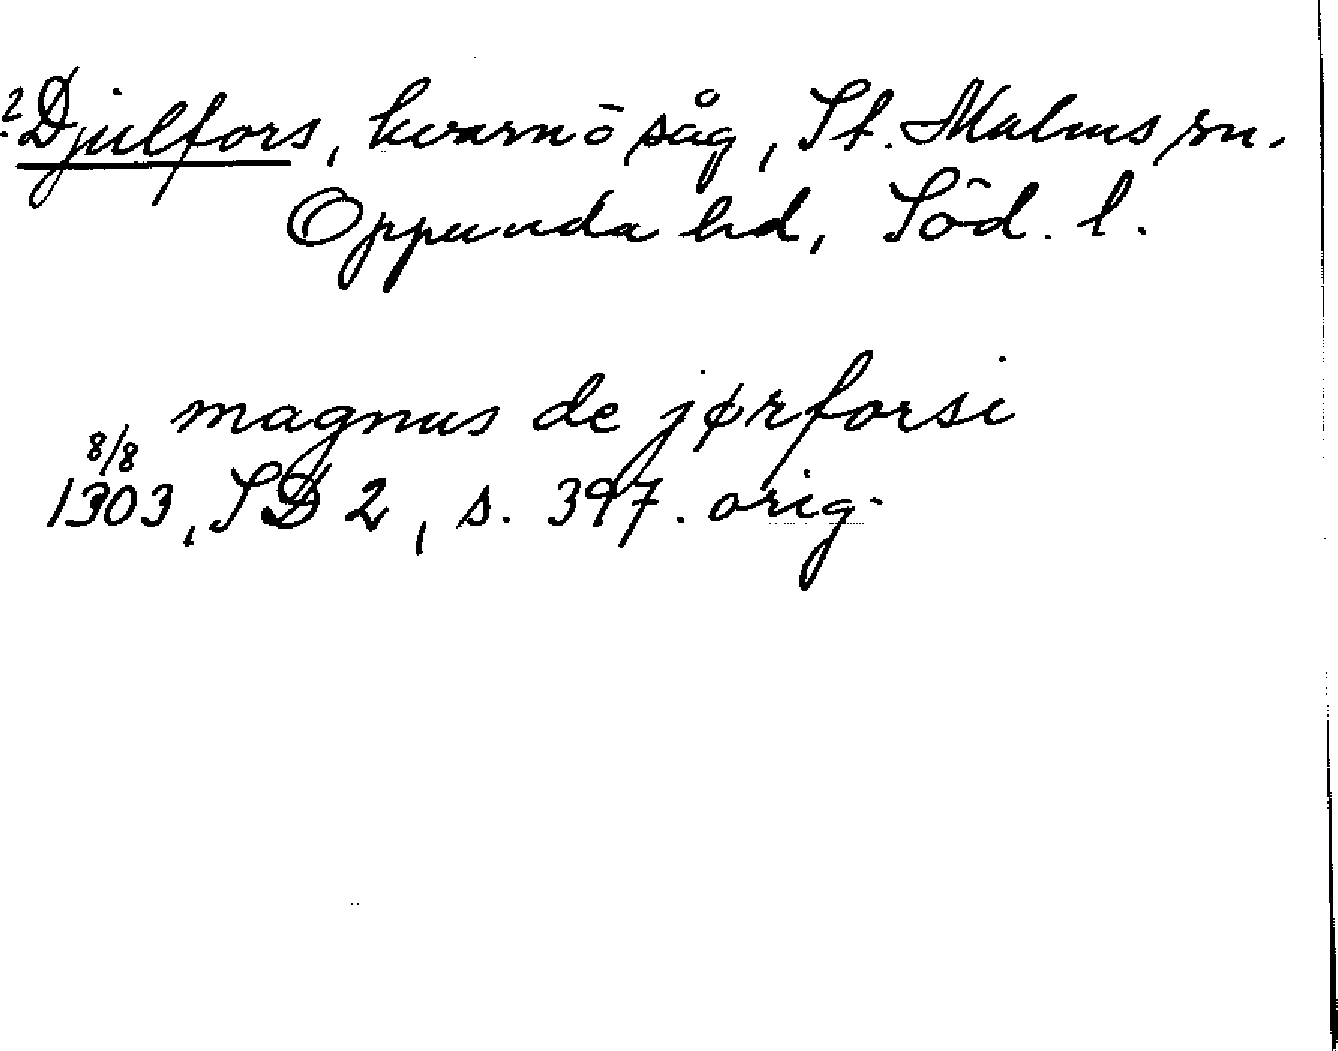 ? Djulfors, kvarn ō såg, St. Malms sn.
Oppunda hd, Söd. l.
magnus de jørforsi
8/8
1303, SD 2, s. 397. orig.